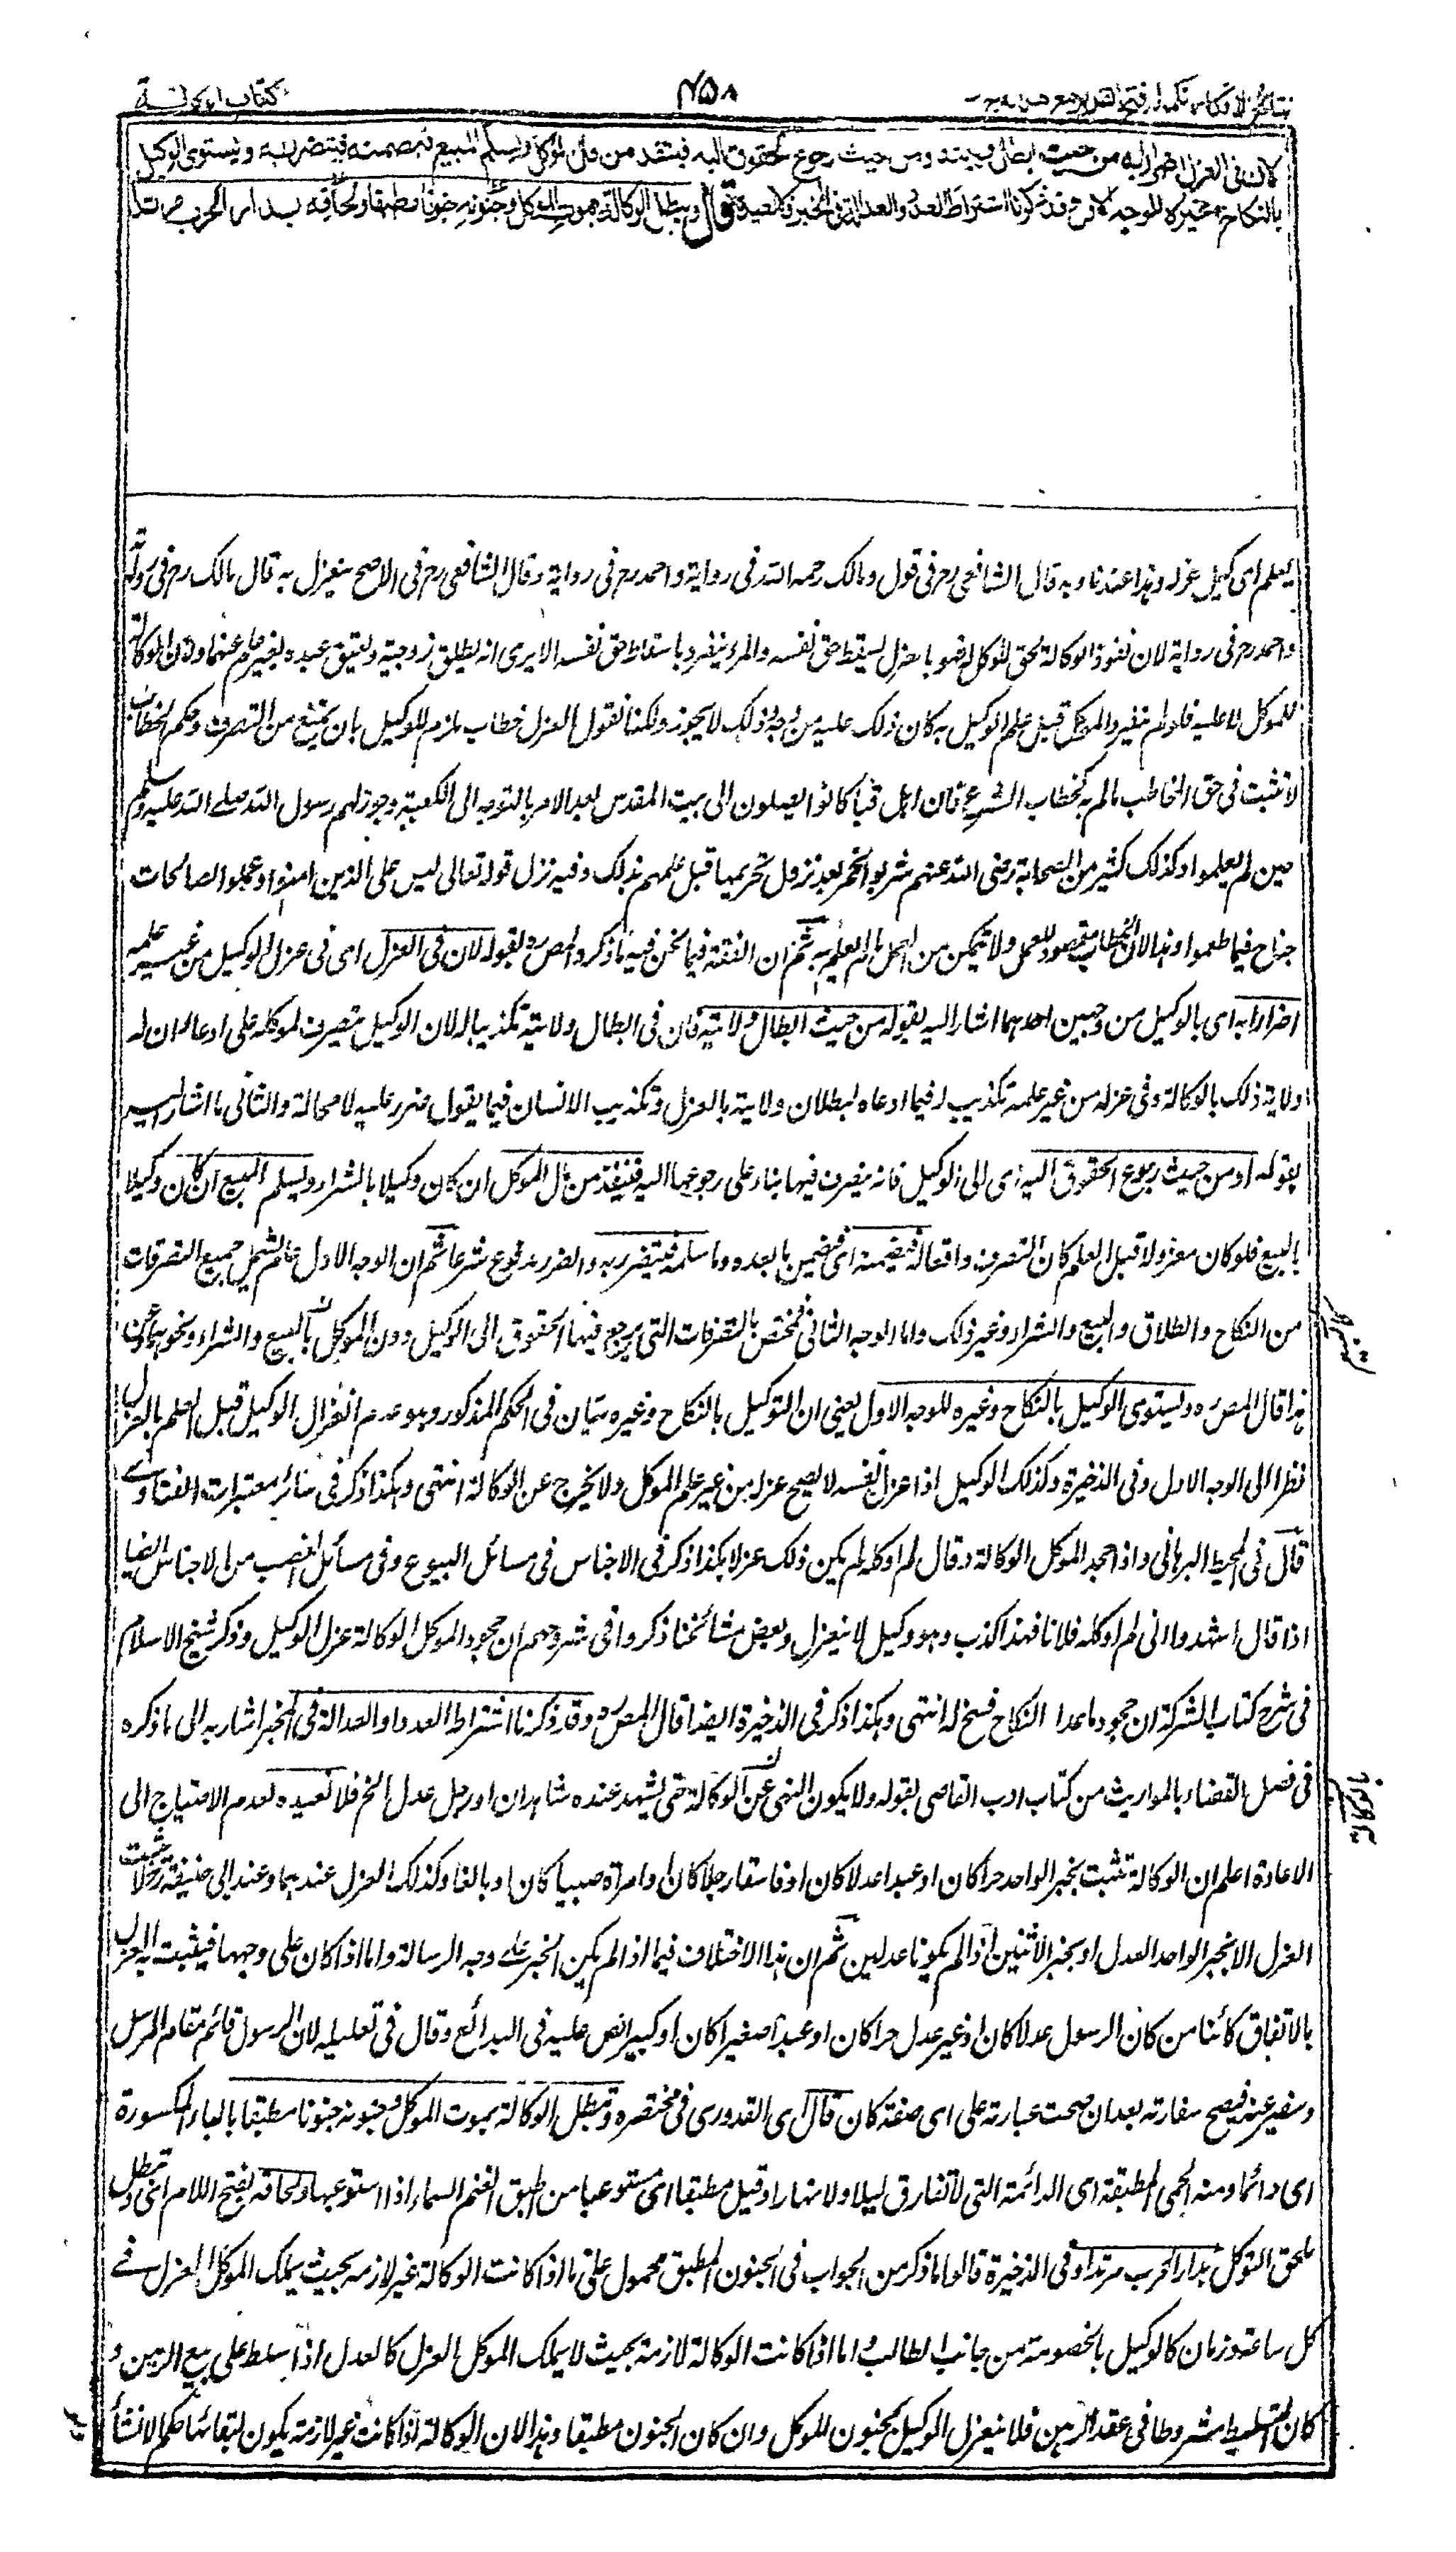 نتائج الافكار تكملة فتح القدير مع هداية ج
٧٥٨
كتاب الوكالة
لان فى العزل اضرارا به من حيث ابطال ولايته ومن حيث رجوع الحقوق اليه فينقد من مال الموكل ويسلم المبيع فيضمنه فيتضرر به ويستوى الوكيل
بالنكاح وغيره للوجه الاول وقد ذكرنا اشتراط العدد او العدالة فى المخبر فلا نعيده قال وتبطل الوكالة بموت الموكل وجنونه جنونا مطبقا ولحاقه بدار الحرب مرتدا
يعلم اى كيل عزله وهذا عندنا وبه قال الشافعى رح فى قول ومالك رحمه الله فى رواية واحمد رح فى رواية وقال الشافعى رح فى الاصح ينعزل به قال مالك رح فى رواية
واحمد رح فى رواية لان نفوذ الوكالة لحق الموكل فهو بالعزل يسقط حق نفسه والمرء ينفرد باسقاط حق نفسه الا يرى انه يطلق زوجته ويعتق عبده بغير علم عنهما ولان الوكالة
للموكل لا عليه فلو لم ينفرد الموكل قبل علم الوكيل به كان ذلك عليه من وجه وذلك لا يجوز ولكنا نقول العزل خطاب ملزم للوكيل بان يمتنع من التصرف وحكم الخطاب
لا يثبت فى حق المخاطب مالم يعلم به كخطاب الشرع فان اهل قبا كانوا يصلون الى بيت المقدس بعد الامر بالتوجه الى الكعبة وجوز لهم رسول الله صلے الله عليه وسلم
حين لم يعلموا وكذلك كثير من الصحابة رضى الله عنهم شربوا الخمر بعد نزول تحريمها قبل علمهم بذلك وفيه نزل قوله تعالى ليس على الذين امنوا وعملوا الصالحات
جناح فيما طعموا وهذا لان الخطاب مقصود للعمل ولا يتمكن من العمل مالم يعلم به ثم ان الفقه فيما نحن فيه ما ذكره المص رح بقوله لان فى العزل اى فى عزل الوكيل من غير علمه
اضرارا به اى بالوكيل من وجهين احدهما اشار اليه بقوله من حيث ابطال ولايته فان فى ابطال ولايته تكذيبا له لان الوكيل يتصرف لموكله على ادعاء ان له
ولاية ذلك بالوكالة وفى عزله من غير علمه تكذيب له فيما ادعاه لبطلان ولايته بالعزل وتكذيب الانسان فيما يقول ضرر عليه لا محالة والثانى ما اشار اليه
بقوله او من حيث رجوع الحقوق اليه اى الى الوكيل فانه يتصرف فيها بناء على رجوعها اليه فينقد من مال الموكل ان كان وكيلا بالشراء ويسلم المبيع ان كان وكيلا
بالبيع فلو كان معزولا قبل العلم كان التصرف واقعا له فيضمنه اى فيضمن ما نقده وما سلمه فيتضرر به والضرر مدفوع شرعا ثم ان الوجه الاول عام يشمل جميع التصرفات
من النكاح والطلاق والبيع والشراء وغير ذلك واما الوجه الثانى فمختص بالتصرفات التى يرجع فيها الحقوق الى الوكيل دون الموكل كالبيع والشراء ونحوهما وعن
هذا قال المص رح ويستوى الوكيل بالنكاح وغيره للوجه الاول يعنى ان التوكيل بالنكاح وغيره سيان فى الحكم المذكور وهو عدم انعزال الوكيل قبل العلم بالعزل
نظرا الى الوجه الاول وفى الذخيرة وكذلك الوكيل اذا عزل نفسه لا يصح عزله من غير علم الموكل ولا يخرج عن الوكالة انتهى وهكذا ذكر فى سائر معتبرات الفتاوے
قال فى المحيط البرهانى واذا جحد الموكل الوكالة وقال لم اوكله لم يكن ذلك عزلا هكذا ذكر فى الاجناس فى مسائل البيوع وفى مسائل الغصب من الاجناس ايضا
اذا قال اشهدوا انى لم اوكله فلانا فهذا كذب وهو وكيل لا ينعزل وبعض مشائخنا ذكروا فى شروحهم ان جحود الموكل الوكالة عزل للوكيل وذكر شيخ الاسلام
فى شرح كتاب الشركة ان جحود ما عدا النكاح فسخ له انتهى وهكذا ذكر فى الذخيرة ايضا قال المص رح وقد ذكرنا اشتراط العدد او العدالة فى المخبر اشار به الى ما ذكره
فى فصل القضاء بالمواريث من كتاب ادب القاضى بقوله ولا يكون النهى عن الوكالة حتى يشهد عنده شاهدان او رجل عدل الخ فلا نعيده لعدم الاحتياج الى
الاعادة اعلم ان الوكالة تثبت بخبر الواحد حرا كان او عبدا عدلا كان او فاسقا رجلا كان او امراة صبيا كان او بالغا وكذلك العزل عندهما وعند ابى حنيفة رح لا يثبت
العزل الا بخبر الواحد العدل او بخبر الاثنين اذا لم يكونا عدلين ثم ان هذا الاختلاف فيما اذا لم يكن الخبر علے وجه الرسالة واما اذا كان على وجهها فيثبت به العزل
بالاتفاق كائنا من كان الرسول عدلا كان او غير عدل حرا كان او عبدا صغيرا كان او كبيرا نص عليه فى البدائع وقال فى تعليله لان الرسول قائم مقام المرسل
وسفير عنه فيصح سفارته بعد ان صحت عبارته على اى صفة كان قال اى القدورى فى مختصره وتبطل الوكالة بموت الموكل وجنونه جنونا مطبقا بالباء المكسورة
اى دائما ومنه الحمى المطبقة اى الدائمة التى لا تفارق ليلا ولا نهارا وقيل مطبقا اى مستوعبا من اطبق الغيم السماء اذا استوعبها ولحاقه بفتح اللام اى وتبطل
بلحاق الموكل بدار الحرب مرتدا وفى الذخيرة قالوا ما ذكر من الجواب فى الجنون المطبق محمول على ما اذا كانت الوكالة غير لازمة بحيث يملك الموكل العزل فے
كل ساعة وزمان كالوكيل بالخصومة من جانب الطالب واما اذا كانت الوكالة لازمة بحيث لا يملك الموكل العزل كالعدل اذا سلط على بيع الرهن و
كان التسليط مشروطا فى عقد الرهن فلا ينعزل الوكيل بجنون الموكل وان كان الجنون مطبقا وهذا لان الوكالة اذا كانت غير لازمة يكون لبقائها حكم الانشاء